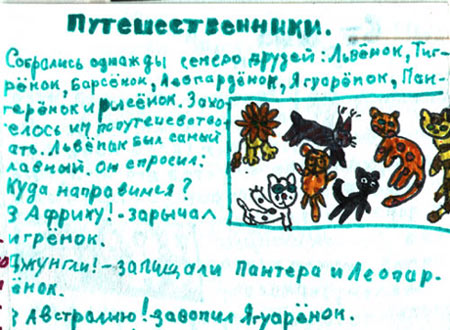 Путешественники.
Собрались однажды семеро друзей: Львёнок, Тиг-
рёнок, Барсёнок, Леопардёнок, Ягуарёнок, Пан-
терёнок и рысёнок. Захо-
елось им поутешество-
ать. Львёнок был самый
лавный. Он спросил:
Куда направимся?
З Африху! - зарычал
игрёнок.
Джунгли! - запищали Пантера и Леопар-
ёнок.
З Австралию! завопил Ягуарёнок.